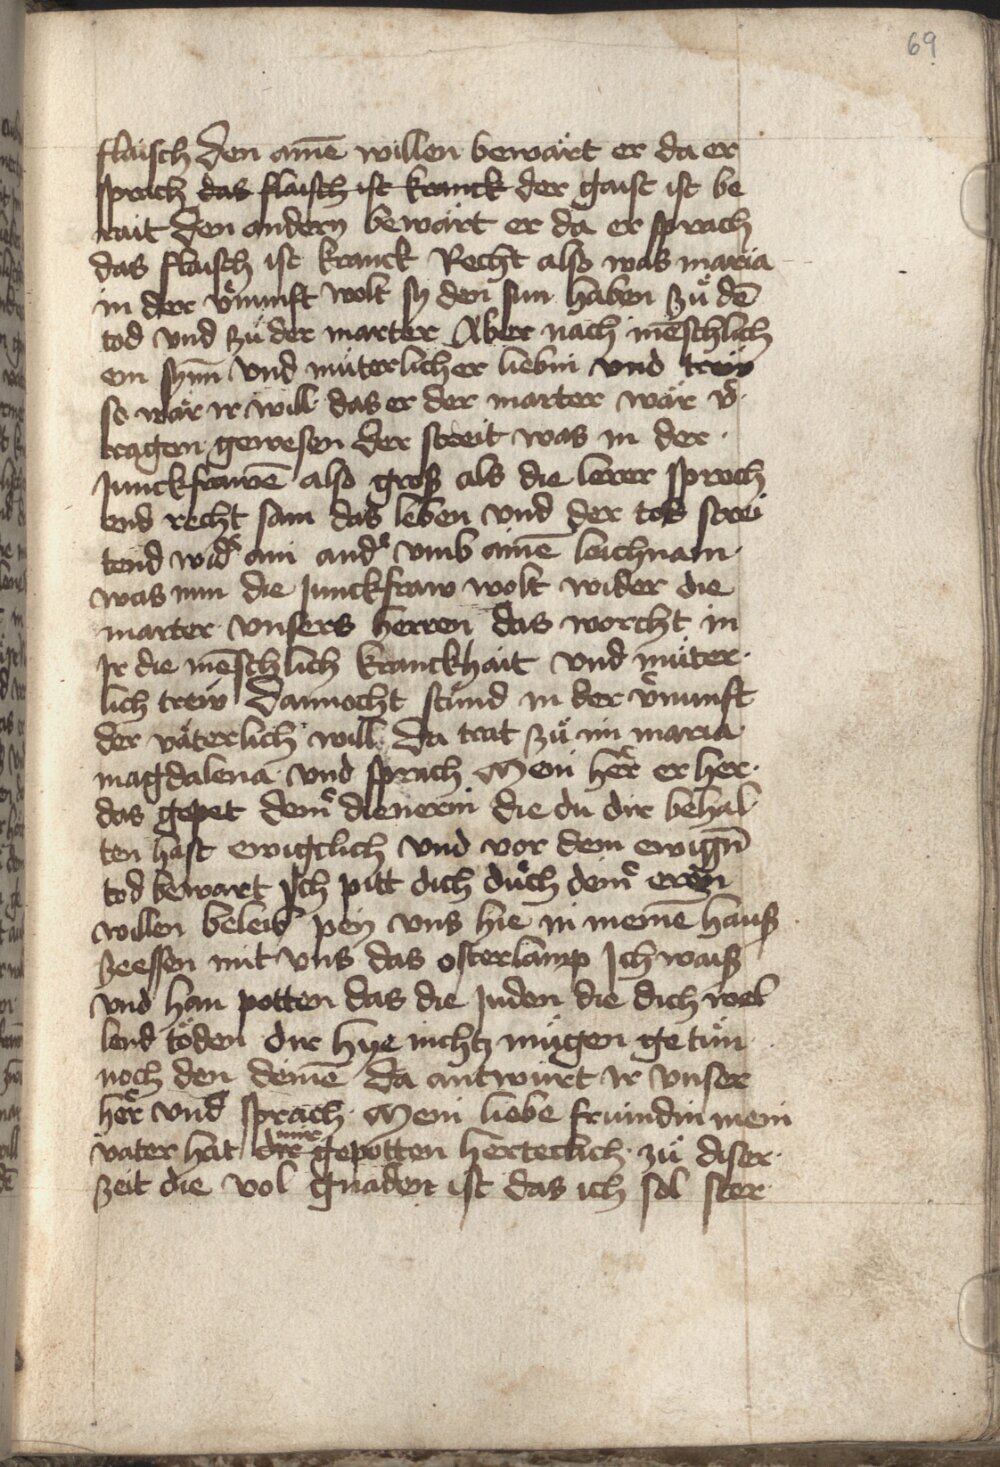 69
flaisch Den ainē willen bewärt er da er
sprach das flaisch ist kranck der gaist ist be
rait Den andern bewärt er da er sprach
das flaisch ist kranck Recht also was maria
in der v̉nunft wolt sy den sun haben zů dē
tod vnd zů der marter Aber nach mēschlich
em synn vnd müterlicher liebin vnd treẅ
so wär ir will das er der marter wär v̉
tragen gewesen Der streit was in der
Junckfrawē also groß als die lerer sproch
end recht sam das leben vnd der tod strei
tend wid̉ ain and̉ vmb ainē leichnam
was nun die Junckfraw wolt wider die
marter vnsers herren das worcht in
Ir die mēschlich kranckhait vnd müter
lich treẅ Dannocht stůnd in der v̉nunft
der väterlich will Da trat zů im maria
magdalena vnd sprach Mein her̉ er her
das gepet dein̉ dienerin die du dir behal
ten hast ewigclich vnd vor dem ewign̄
tod bewart Ich pitt dich durch dein̉ eren
willen beleib pey vns hie in meinē hauß
zeessen mit vns das osterlamp Ich waiß
vnd han potten das die Juden die dich wel
lend töden dir hye nichtz mügen getůn
noch den deinē Da antwurt ir vnser
her̉ vnd sprach Mein liebe fruindin mein
vater hat dir mir gepotten herteclich zů diser
zeit die vol gnaden ist das ich sol ster